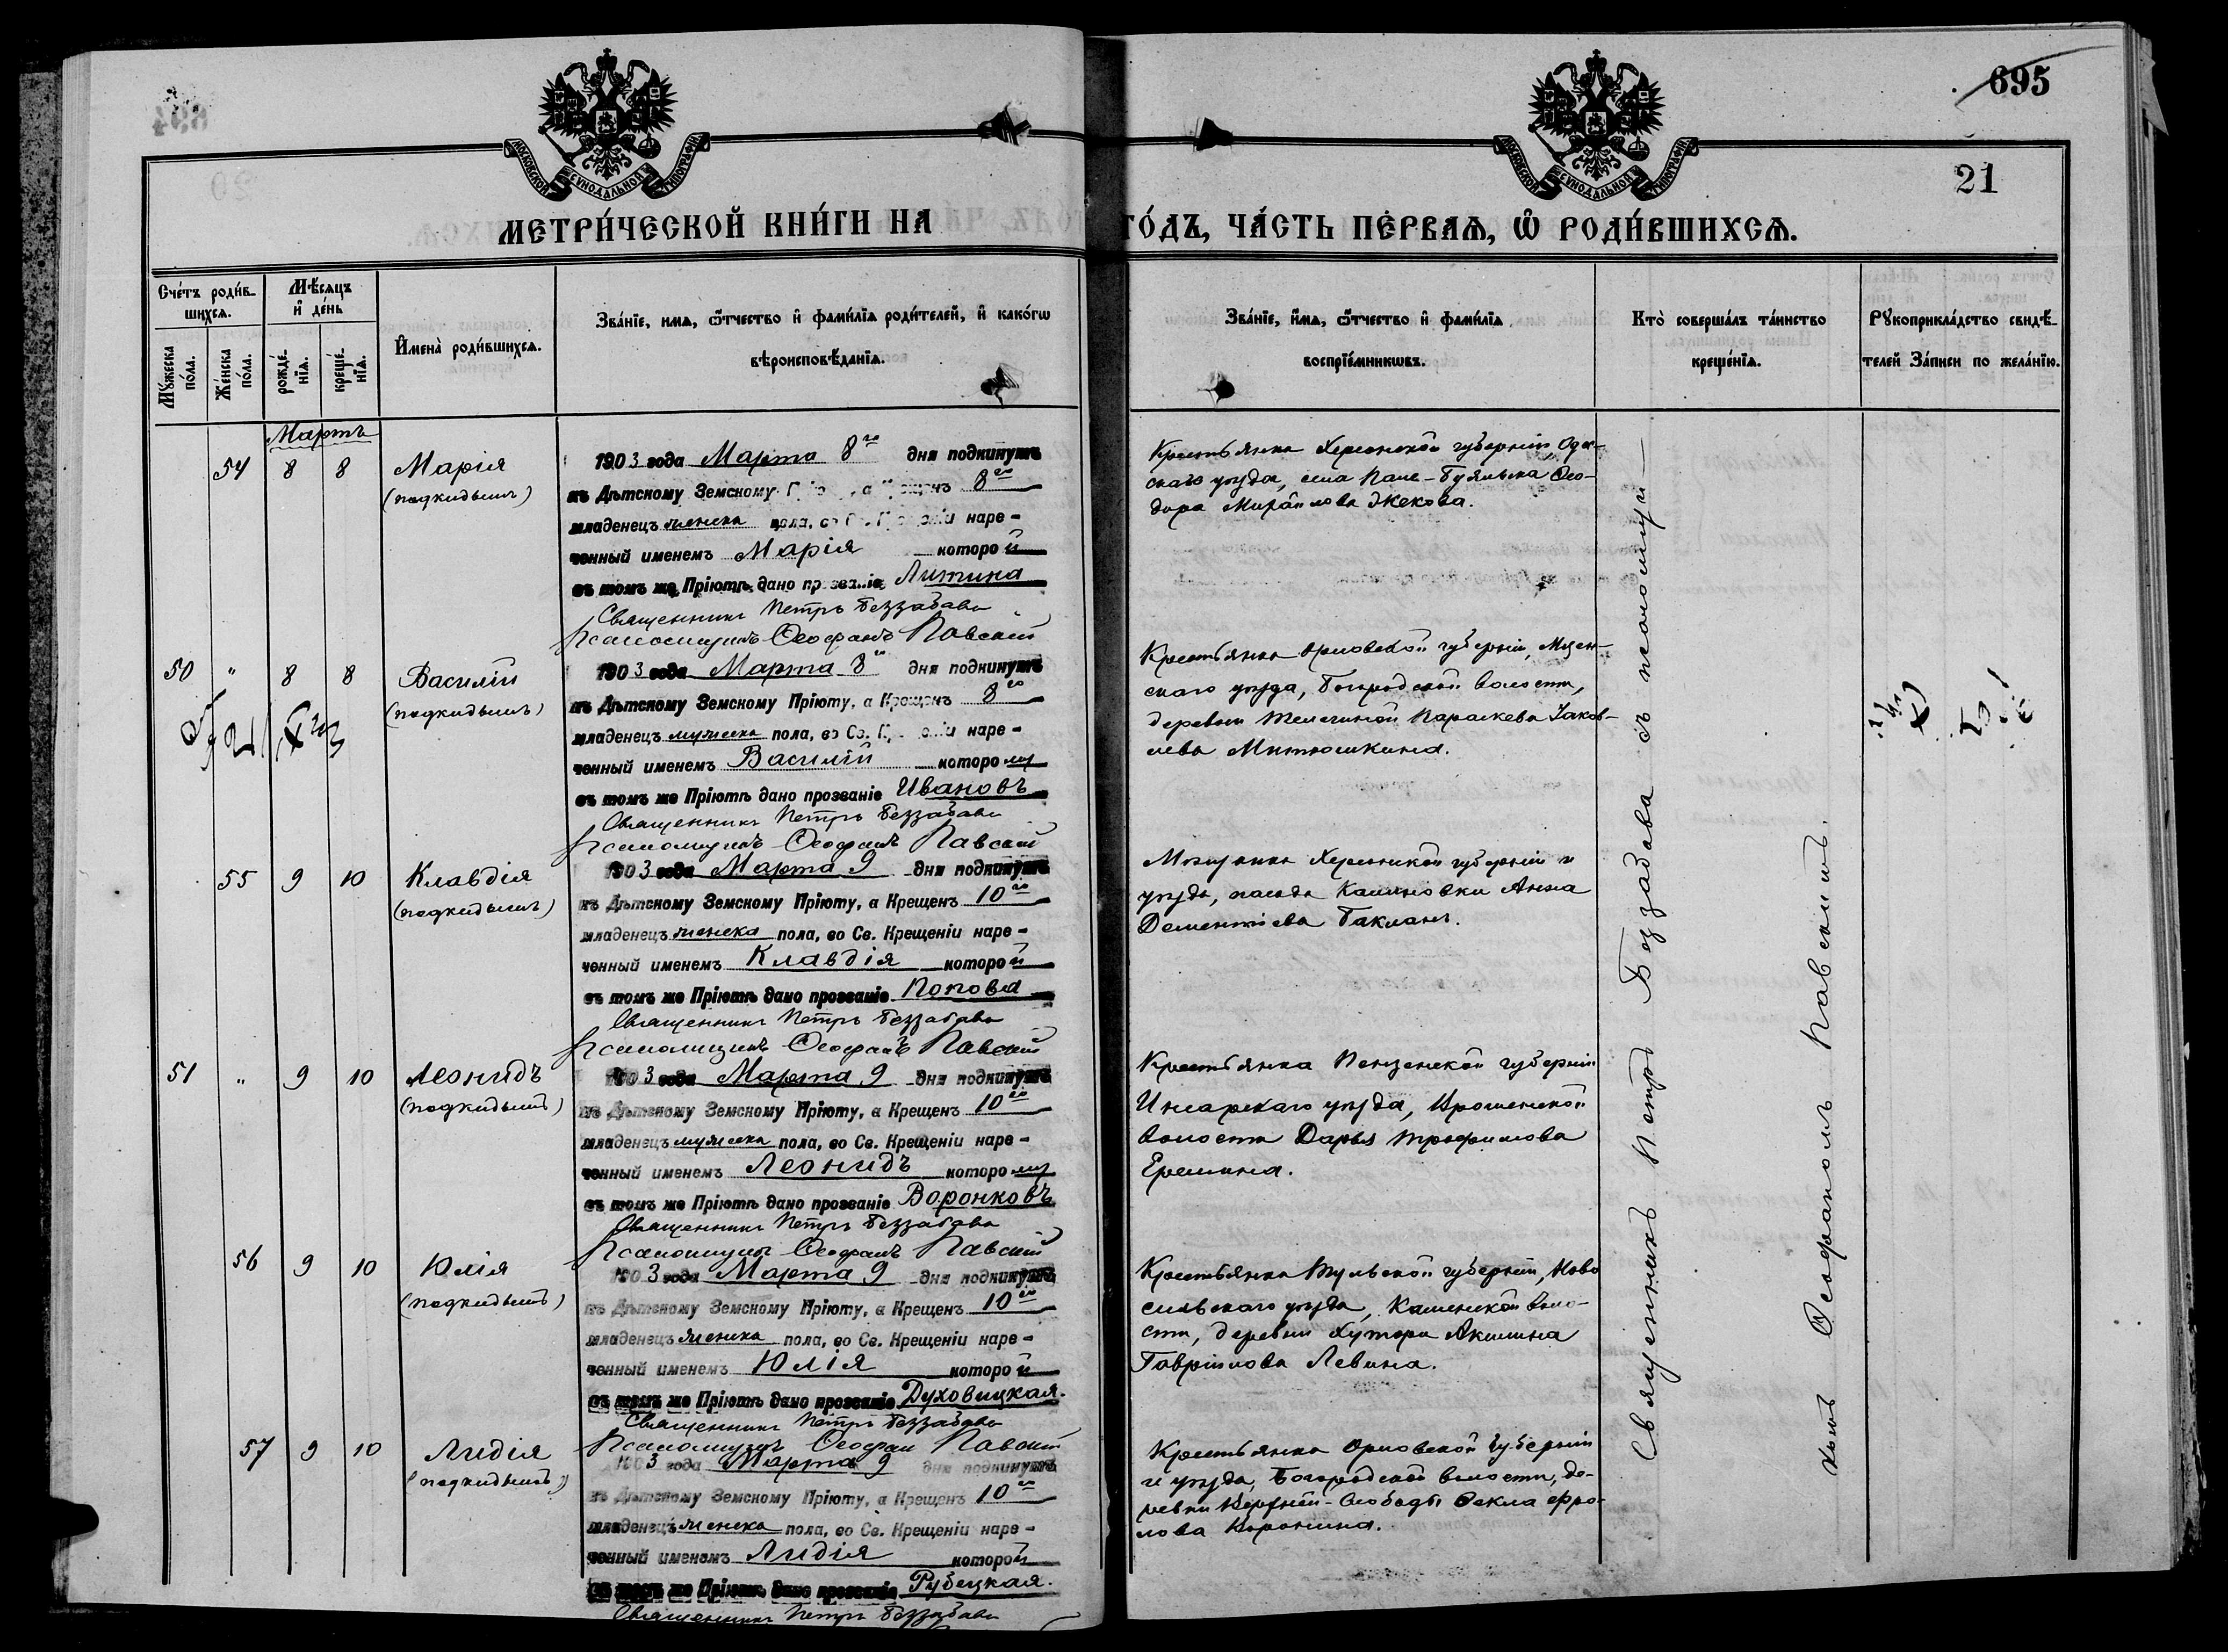 695
21
МОСКОВСКОЙ СѴНОДАЛЬНОЙ ТИПОГРАФІИ
МОСКОВСКОЙ СѴНОДАЛЬНОЙ ТИПОГРАФІИ
МЕТРИ́ЧЕСКОЙ КНИ́ГИ НА
ГО́ДЪ, ЧА́СТЬ ПЕ́РВАѦ, Ѡ҆ РОДИ́ВШИХСѦ.
Сче́тъ роди́в-
шихсѧ.
Мꙋжеска по́ла.
Же́нска по́ла.
Мѣ́сѧцъ
и҆ де́нь
рожде́-
нїѧ.
креще́-
нїѧ.
И҆мена̀ роди́вшихсѧ.
Зва́нїе, имѧ, ѻ҆́тчество и҆ фами́лїѧ роди́телей, и҆ како́гѡ
вѣроисповѣ́данїѧ.
Зва́нїе, и҆́мѧ, ѻ҆́тчество и҆ фами́лїѧ
воспрїе́мникѡвъ.
Кто̀ соверша́лъ та́инство
креще́нїѧ.
Рꙋкоприкла́дство свидѣ́-
телей За́писи по жела́нїю.
Мартъ
54 8 8 Марія
(подкидышъ)
1903 года Марта 8го дня подкинутъ
въ Дѣтскому Земскому а 8го
младенецъ женска пола, наре-
ченный именемъ Марія которой
въ томъ же Пріютѣ дано прозваніе Литина
Священникъ Петръ Беззабава
Псаломщикъ Ѳеофанъ Павскій
Крестьянка Херсонской губерніи, Одес-
скаго уѣзда, села Пале-Буялыка Ѳео-
дора Михайлова Жекова.
50 " 8 8 Василій
(подкидышъ)
1903 года Марта 8го дня подкинутъ
въ Дѣтскому Земскому Пріюту, а Крещенъ 8го
младенецъ мужеска пола, во Св. наре-
ченный именемъ Василій которому
въ томъ же Пріютѣ дано прозваніе Ивановъ
Священникъ Петръ Беззабава
Псаломщикъ Ѳеофанъ Павскій
Крестьянка Орловской губерніи, Мцен-
скаго уѣзда, Богородской волости,
деревни Телегиной Параскева Яков-
лева Митюшкина.
55 9 10 Клавдія
(подкидышъ)
1903 года Марта 9 дня подкинутъ
въ Дѣтскому Земскому Пріюту, а Крещенъ 10го
младенецъ женска пола, во Св. Крещеніи наре-
ченный именемъ Клавдія которой
въ томъ же Пріютѣ дано прозваніе Попова
Священникъ Петръ Беззабава
Псаломщикъ Ѳеофанъ Павскій
Мѣщанка Херсонской губерніи и
уѣзда, посада Калиновки Анна
Дементіева Бакланъ.
51 " 9 10 Леонидъ
(подкидышъ)
1903 года Марта 9 дня подкинутъ
въ Дѣтскому Земскому Пріюту, а Крещенъ 10го
младенецъ мужеска пола, во Св. Крещеніи наре-
ченный именемъ Леонидъ которому
въ томъ же Пріютѣ дано прозваніе Воронковъ
Священникъ Петръ Беззабава
Псаломщикъ Ѳеофанъ Павскій
Крестьянка Пензенской губерніи
Инсарскаго уѣзда,
волости Дарья Трофимова
Ерешина.
56 9 10 Юлія
(подкидышъ)
1903 года Марта 9 дня подкинутъ
въ Дѣтскому Земскому Пріюту, а Крещенъ 10го
младенецъ женска пола, во Св. Крещеніи наре-
ченный именемъ Юлія которой
въ томъ же Пріютѣ дано прозваніе Духовицкая.
Священникъ Петръ Беззабава
Псаломщикъ Ѳеофан Павскій
Крестьянка Тульской губерніи, Ново
сильскаго уѣзда, Каменской воло-
сти, деревни Хутора Акилина
Гаврилова Левина.
57 9 10 Лидія
(подкидышъ)
1903 года Марта 9 дня подкинутъ
въ Дѣтскому Земскому Пріюту, а Крещенъ 10го
младенецъ женска пола, во Св. Крещеніи наре-
ченный именемъ Лидія которой
въ томъ же Пріютѣ дано прозваніе Рубецкая.
Священникъ Петръ Беззабава
Крестьянка Орловской Губерніи
и уѣзда, Богородской волости, де-
ревни Слободы Ѳекла Фро-
лова Коронина.
Священникъ Петръ Беззабава съ псаломщи-
комъ Ѳеофаномъ Павскимъ.